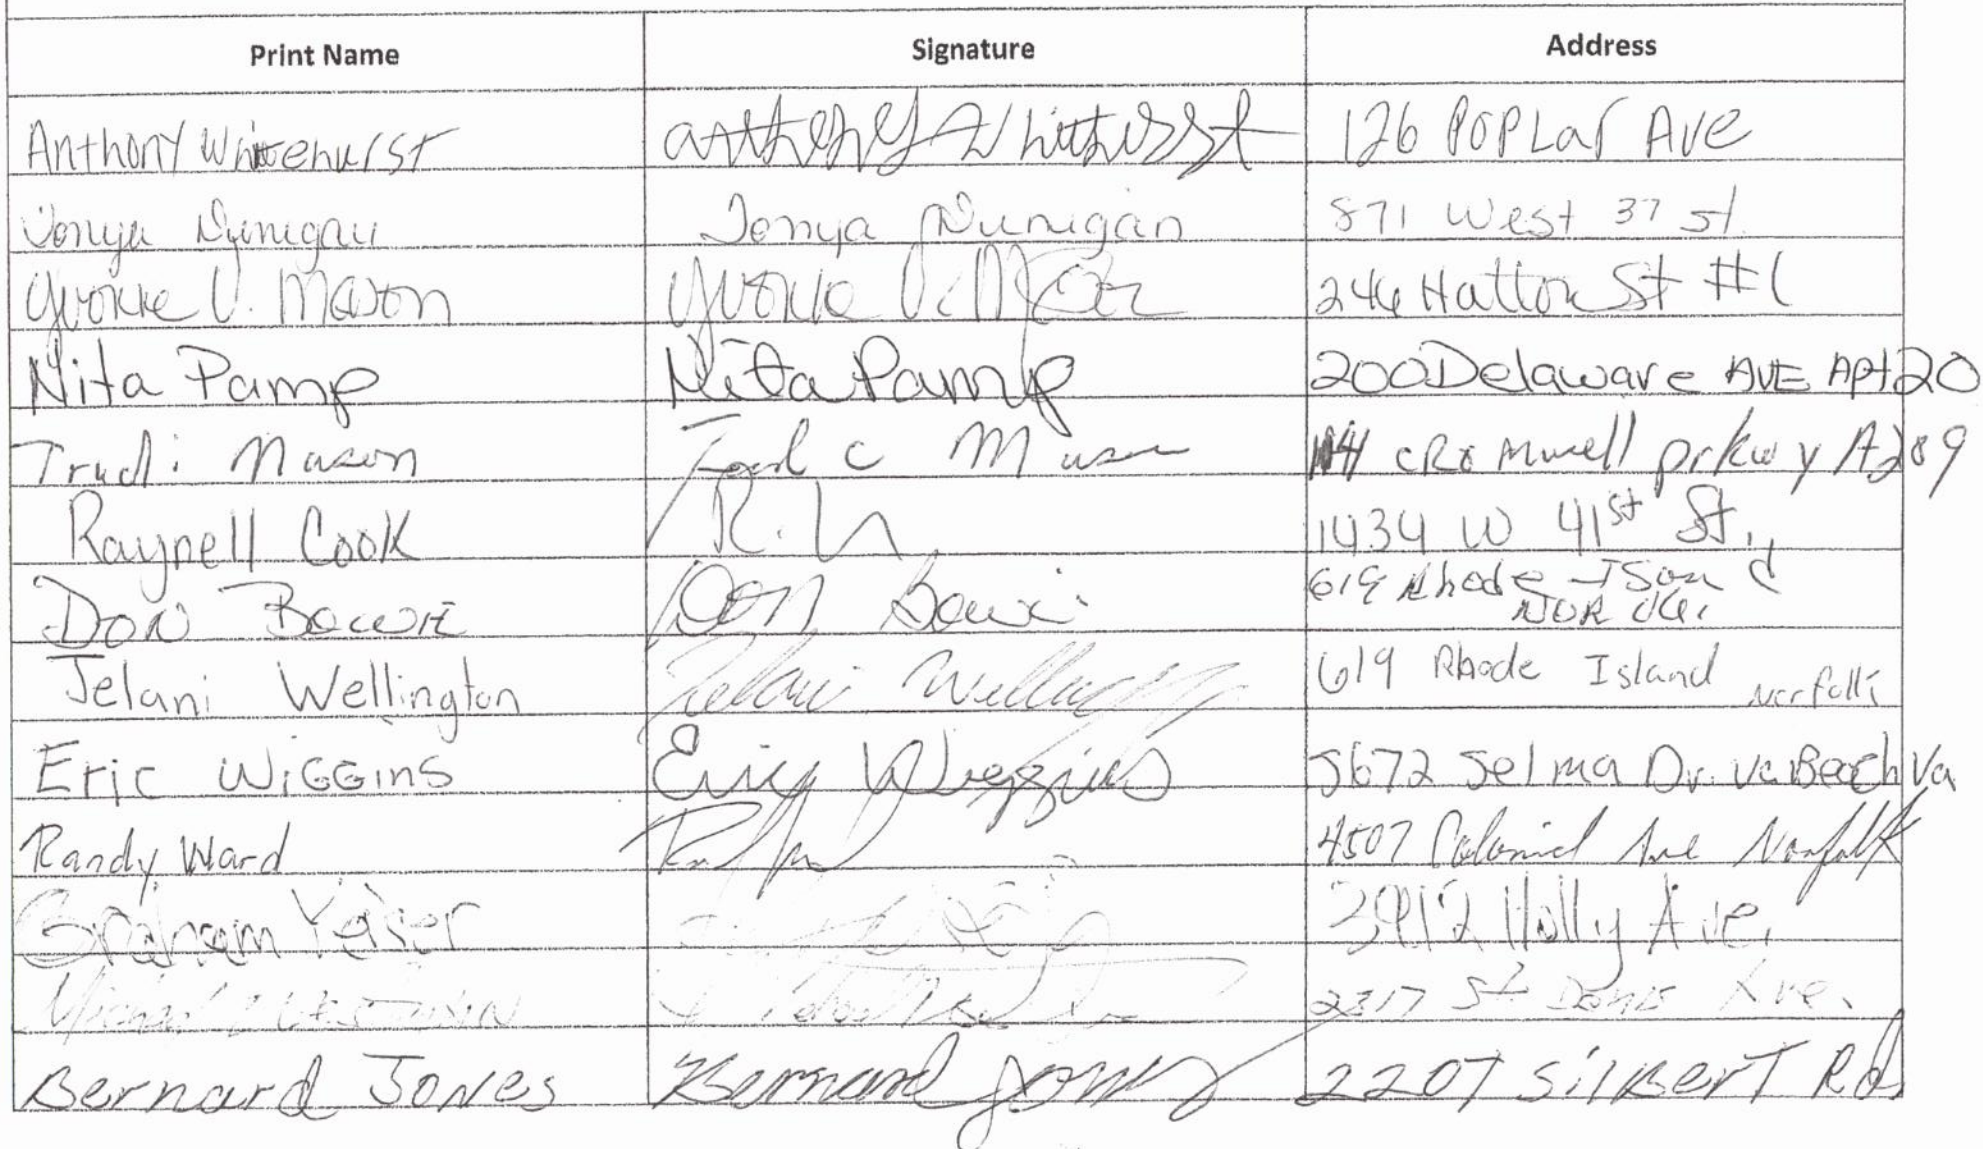 Print Name Signature Address
Anthony Whitehurst anthony Whitehurst 126 POPLar Ave
Tonya Dunigan Tonya Dunigan 871 West 37 st.
Yvonne V. Mason Yvonne V. 246 Hatton St #1
Nita Pamp Nita Pamp 200 Delaware AVE Apt 20
Trudi Mason C Mason CROMwell prkwy A209
Raynell Cook R. 1434 W 41st St.,
Don Bowie Don Bowie 619 Rhode
NOR
Jelani Wellington Jelani 619 Rhode Island Norfolk
Eric WIGGINS Eric Wiggins 5672 Selma Dr. Va Beach Va
Randy Ward 4507 Colonial Ave Norfolk
Graham Yeiser 3912 Holly Ave.
Michael 2317 St Denis Ave.
Bernard Jones Bernard Jones 2207 SilBerT Rd